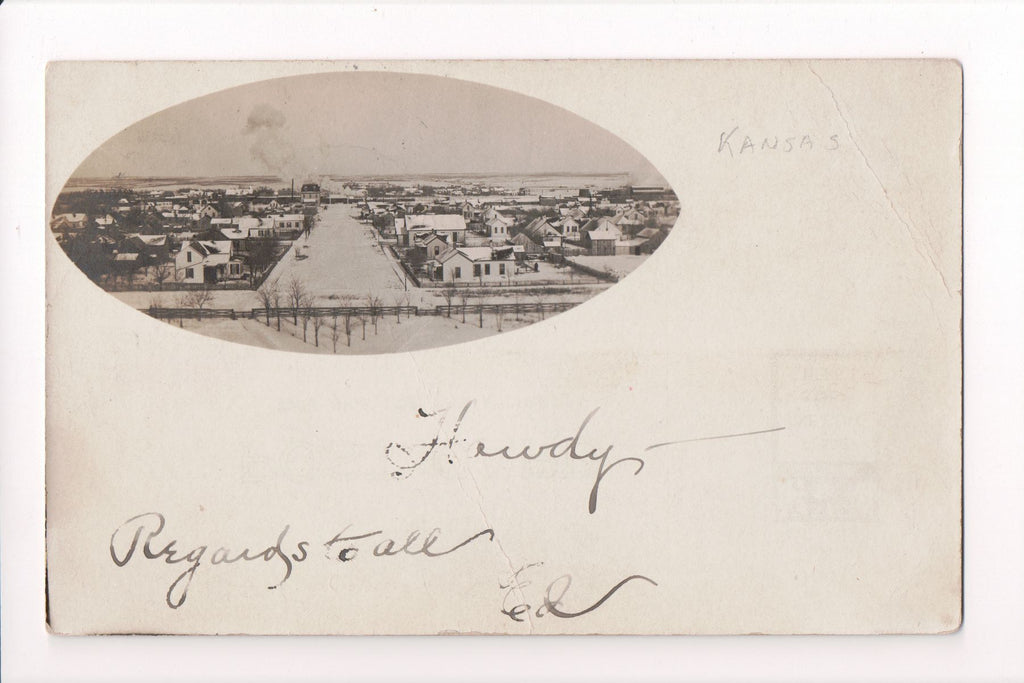 KANSAS
Howdy —
Regards to all
Ed